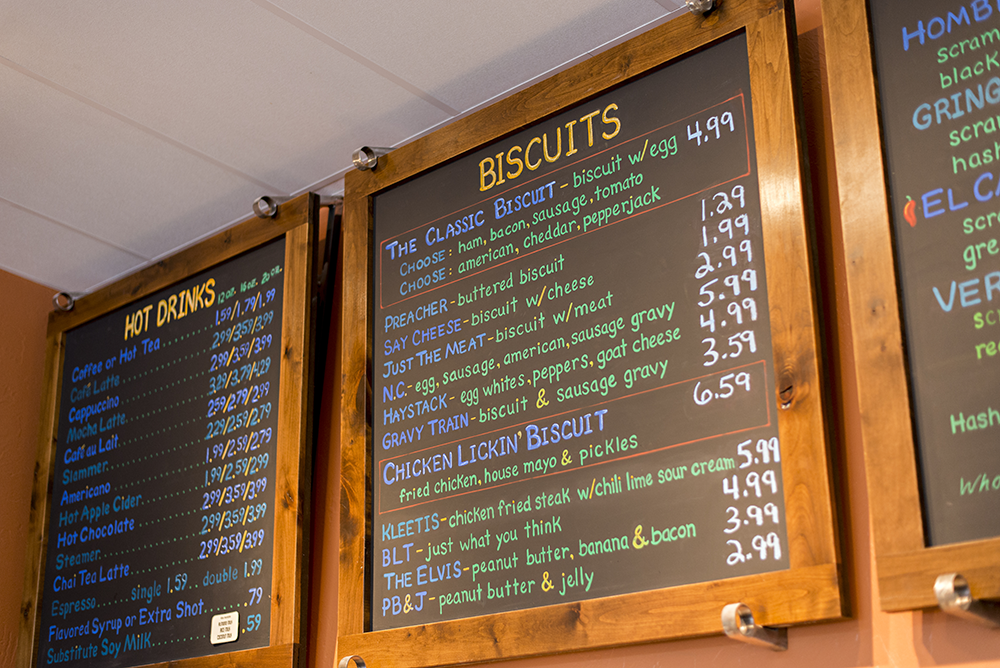 HOT DRINKS 12 oz. 16 oz. 20 oz.
Coffee or Hot Tea 1.59/1.79/1.99
Café Latte 2.99/3.59/3.99
Cappuccino 2.99/3.59/3.99
Mocha Latte 3.29/3.79/4.29
Café au Lait 2.59/2.79/2.99
Steamer 2.29/2.59/2.79
Americano 1.99/2.59/2.79
Hot Apple Cider 1.99/2.59/2.99
Hot Chocolate 2.99/3.59/3.99
Steamer 2.99/3.59/3.99
Chai Tea Latte 2.99/3.59/3.99
Espresso single 1.59 .. double 1.99
Flavored Syrup or Extra Shot .79
Substitute Soy Milk .59
BISCUITS
THE CLASSIC BISCUIT - biscuit w/egg 4.99
CHOOSE: ham, bacon, sausage, tomato
CHOOSE: american, cheddar, pepperjack
PREACHER - buttered biscuit 1.29
SAY CHEESE - biscuit w/cheese 1.99
JUST THE MEAT - biscuit w/meat 2.99
N.C. - egg, sausage, american, sausage gravy 5.99
HAYSTACK - egg whites, peppers, goat cheese 4.99
GRAVY TRAIN - biscuit & sausage gravy 3.59
CHICKEN LICKIN' BISCUIT 6.59
fried chicken, house mayo & pickles
KLEETIS - chicken fried steak w/chili lime sour cream 5.99
BLT - just what you think 4.99
THE ELVIS - peanut butter, banana & bacon 3.99
PB&J - peanut butter & jelly 2.99
HOMB
scram
black
GRING
scra
hash
EL CA
scr
gre
VER
sc
re
Hash
Who